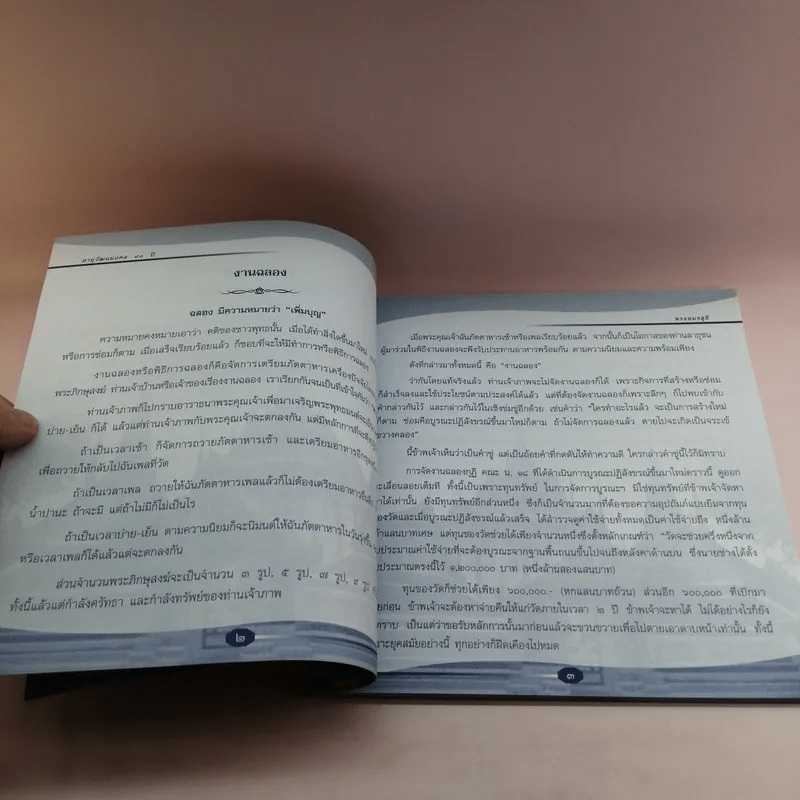 อายุวัฒนมงคล ๘๐ ปี
งานฉลอง
ฉลอง มีความหมายว่า "เพิ่มบุญ"
ความหมายคงหมายเอาว่า คติของชาวพุทธนั้น เมื่อได้ทำสิ่งใดขึ้นมาใหม่
หรือการซ่อมก็ตาม เมื่อเสร็จเรียบร้อยแล้ว ก็ชอบที่จะให้มีทำการหรือพิธีการฉลอง
งานฉลองหรือพิธีการฉลองก็คือจัดการเตรียมภัตตาหารเครื่องปัจจัยไทย
พระภิกษุสงฆ์ ท่านเจ้าบ้านหรือเจ้าของเรื่องงานฉลอง เราเรียกกันจนเป็นที่เข้าใจกันว่า
ท่านเจ้าภาพก็ไปกราบอาราธนาพระคุณเจ้าเพื่อมาเจริญพระพุทธมนต์จะเป็น
บ่าย-เย็น ก็ได้ แล้วแต่ท่านเจ้าภาพกับพระคุณเจ้าจะตกลงกัน แต่มีหลักการที่จะพึง
ถ้าเป็นเวลาเช้า ก็จัดการถวายภัตตาหารเช้า และเตรียมอาหารอีกชุด
เพื่อถวายให้กลับไปฉันเพลที่วัด
ถ้าเป็นเวลาเพล ถวายให้ฉันภัตตาหารเพลแล้วก็ไม่ต้องเตรียมอาหารอื่น
น้ำปานะ ถ้าจะมี แต่ถ้าไม่มีก็ไม่เป็นไร
ถ้าเป็นเวลาบ่าย-เย็น ตามความนิยมก็จะนิมนต์ให้ฉันภัตตาหารในวันรุ่งขึ้น
หรือเวลาเพลก็ได้แล้วแต่จะตกลงกัน
ส่วนจำนวนพระภิกษุสงฆ์จะเป็นจำนวน ๓ รูป, ๕ รูป, ๗ รูป, ๙ รูป
ทั้งนี้แล้วแต่กำลังศรัทธา และกำลังทรัพย์ของท่านเจ้าภาพ
๒
พระอมรสุธี
เมื่อพระคุณเจ้าฉันภัตตาหารเช้าหรือเพลเรียบร้อยแล้ว จากนั้นก็เป็นโอกาสของท่านสาธุชน
ผู้มาร่วมในพิธีงานฉลองจะพึงรับประทานอาหารพร้อมกัน ตามความนิยมและความพร้อมเพรียง
ดังที่กล่าวมาทั้งหมดนี้ คือ "งานฉลอง"
ว่ากันโดยแท้จริงแล้ว ท่านเจ้าภาพจะไม่จัดงานฉลองก็ได้ เพราะกิจการที่สร้างหรือซ่อม
ก็สำเร็จลงและใช้ประโยชน์ตามประสงค์ได้แล้ว แต่ที่ต้องจัดงานฉลองก็เพราะลึกๆ ก็ไปพบเข้ากับ
คำกล่าวกันไว้ และกล่าวกันไว้ในเชิงข่มขู่อีกด้วย เช่นคำว่า "ใครทำอะไรแล้ว จะเป็นการสร้างใหม่
ก็ตาม ซ่อมคือบูรณะปฏิสังขรณ์ขึ้นมาใหม่ก็ตาม ถ้าไม่จัดการฉลองแล้ว ตายไปจะเกิดเป็นจระเข้
ขวางคลอง"
นี้ข้าพเจ้าเห็นว่าเป็นคำขู่ แต่เป็นถ้อยคำที่กดดันให้ทำความดี ใครกล่าวคำขู่นี้ไว้ก็มิทราบ
การจัดงานฉลองกุฏิ คณะ น. ๑๘ ที่ได้ดำเนินการบูรณะปฏิสังขรณ์ขึ้นมาใหม่คราวนี้ ดูออก
จะเลื่อนลอยเต็มที ทั้งนี้เป็นเพราะทุนทรัพย์ ในการจัดการบูรณะฯ มิใช่ทุนทรัพย์ที่ข้าพเจ้าจัดหา
มาได้เท่านั้น ยังมีทุนทรัพย์อีกส่วนหนึ่ง ซึ่งก็เป็นจำนวนมากที่ต้องขอความอุปถัมภ์แบบยืมจากทุน
ของวัดและเมื่อบูรณะปฏิสังขรณ์แล้วเสร็จ ได้สำรวจดูค่าใช้จ่ายทั้งหมดเป็นค่าใช้จ่ายถึง หนึ่งล้าน
แสนบาทเศษ แต่ทุนของวัดช่วยได้เพียงจำนวนหนึ่งซึ่งตั้งหลักเกณฑ์ว่า "วัดจะช่วยครึ่งหนึ่งจาก
งบประมาณค่าใช้จ่ายที่จะต้องบูรณะจากฐานพื้นถนนขึ้นไปจนถึงหลังคาด้านบน ซึ่งนายช่างได้ตั้ง
ประมาณตรงนี้ไว้ ๑,๒๐๐,๐๐๐ บาท (หนึ่งล้านสองแสนบาท)
ทุนของวัดก็ช่วยได้เพียง ๖๐๐,๐๐๐.- (หกแสนบาทถ้วน) ส่วนอีก ๖๐๐,๐๐๐ ที่เบิกมา
ก่อน ข้าพเจ้าจะต้องหาจ่ายคืนให้แก่วัดภายในเวลา ๒ ปี ข้าพเจ้าจะหาได้ ไม่ได้อย่างไรก็ยัง
ทราบ เป็นแต่ว่าขอรับหลักการนั้นมาก่อนแล้วจะขวนขวายเพื่อไปตายเอาดาบหน้าเท่านั้น ทั้งนี้
เพราะยุคสมัยอย่างนี้ ทุกอย่างก็ฝืดเคืองไปหมด
๓